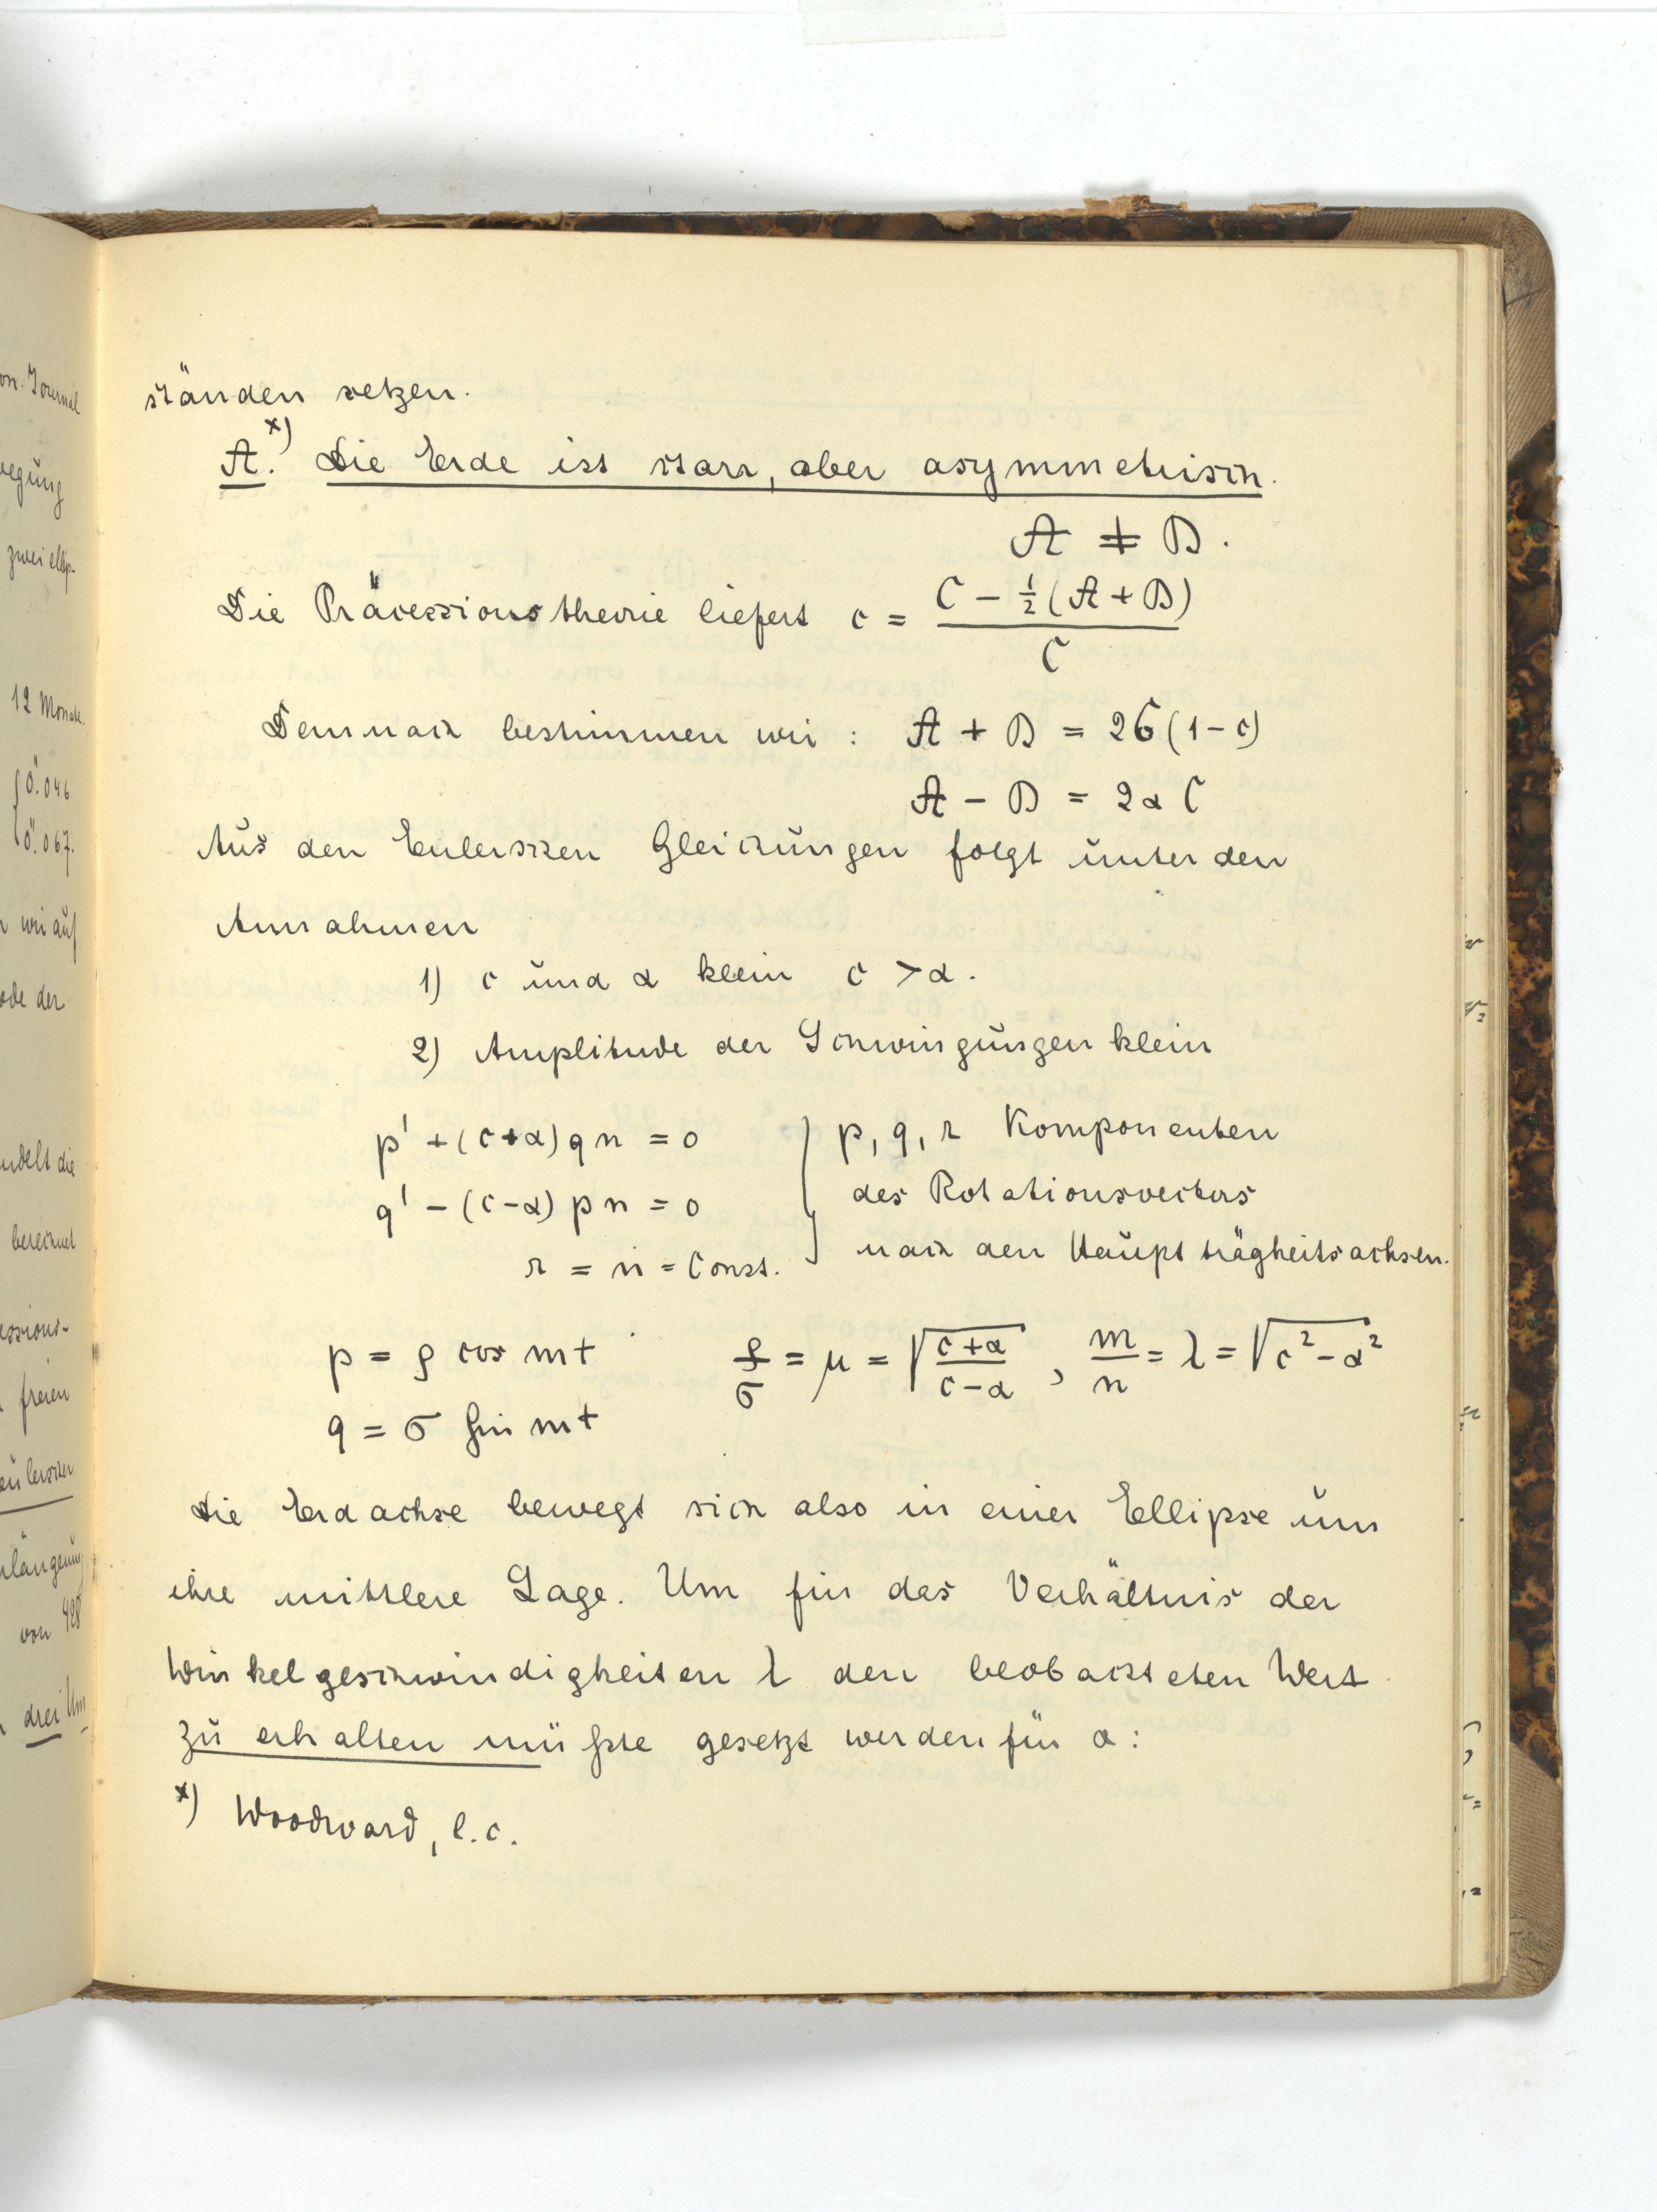 ständen setzen.
A.ˣ⁾ Die Erde ist starr, aber asymmetrisch.
A ≠ B.
Die Präcessionstheorie liefert c = (C - ½(A + B)) / C
Demnach bestimmen wir : A + B = 2C(1-c)
A - B = 2αC
Aus den Eulerschen Gleichungen folgt unter den
Annahmen
1) c und α klein c > α.
2) Amplitude der Schwingungen klein
p' + (c+α) q n = 0
q' - (c-α) p n = 0
r = n = Const.
p, q, r Komponenten
des Rotationsvectors
nach den Hauptträgheitsachsen.
p = ρ cos mt ρ/σ = μ = √((c+α)/(c-α)) , m/n = λ = √(c² - α²)
q = σ sin mt
Die Erdachse bewegt sich also in einer Ellipse um
ihre mittlere Lage. Um für das Verhältnis der
Winkelgeschwindigkeiten λ den beobachteten Wert
zu erhalten müsste gesetzt werden für α:
ˣ⁾ Woodward, l.c.
on. Journal
egung
zwei ellip-
12 Monate.
0".046
0".067.
wir auf
ode der
ndelt die
berechnet
essions-
freien
Eulerschen
längerung
von 428
drei Um